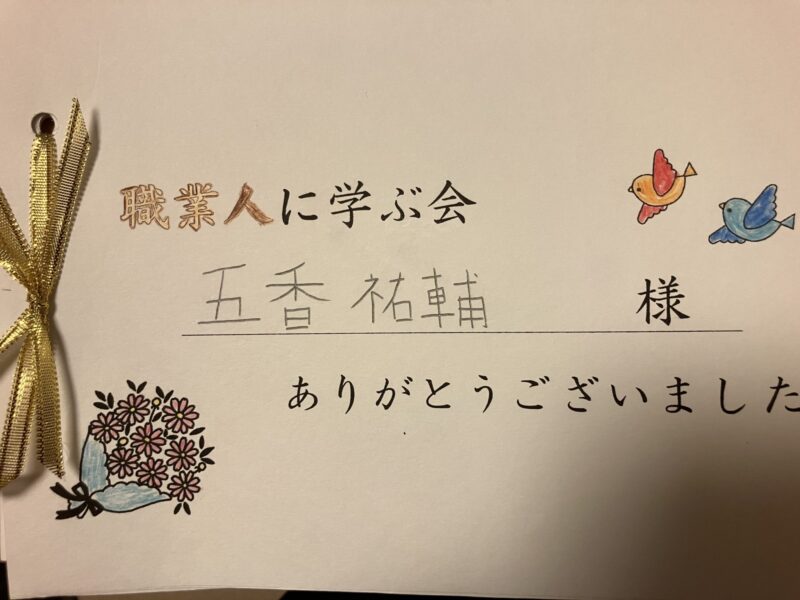 職業人に学ぶ会
五香 祐輔 様
ありがとうございました